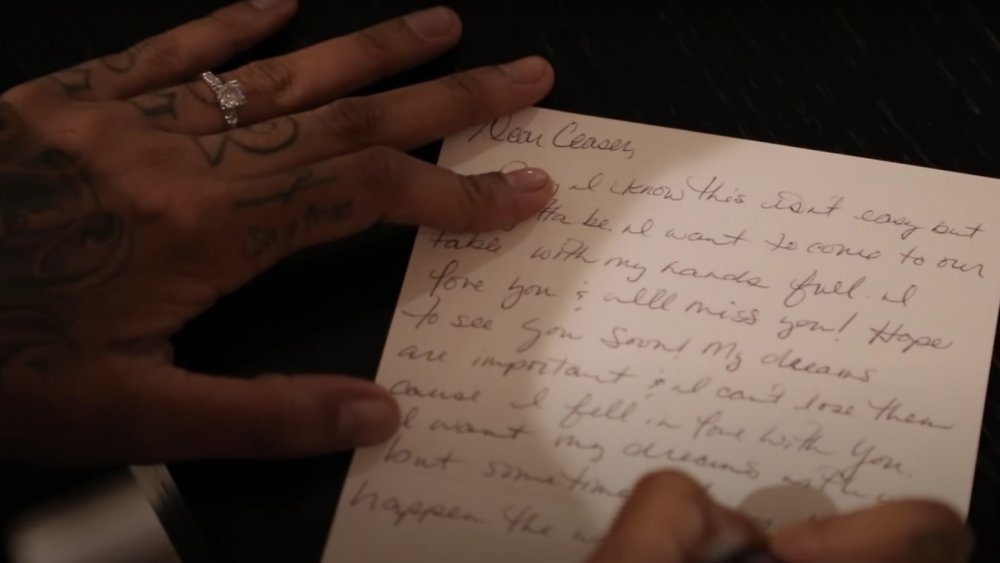 Dear Ceaser,
I know this isn't easy but
be. I want to come to our
table with my hands full. I
love you & I'll miss you! Hope
to see you soon! My dreams
are important & I can't lose them
cause I fell in love with you.
I want my dreams with
but sometime
happen the